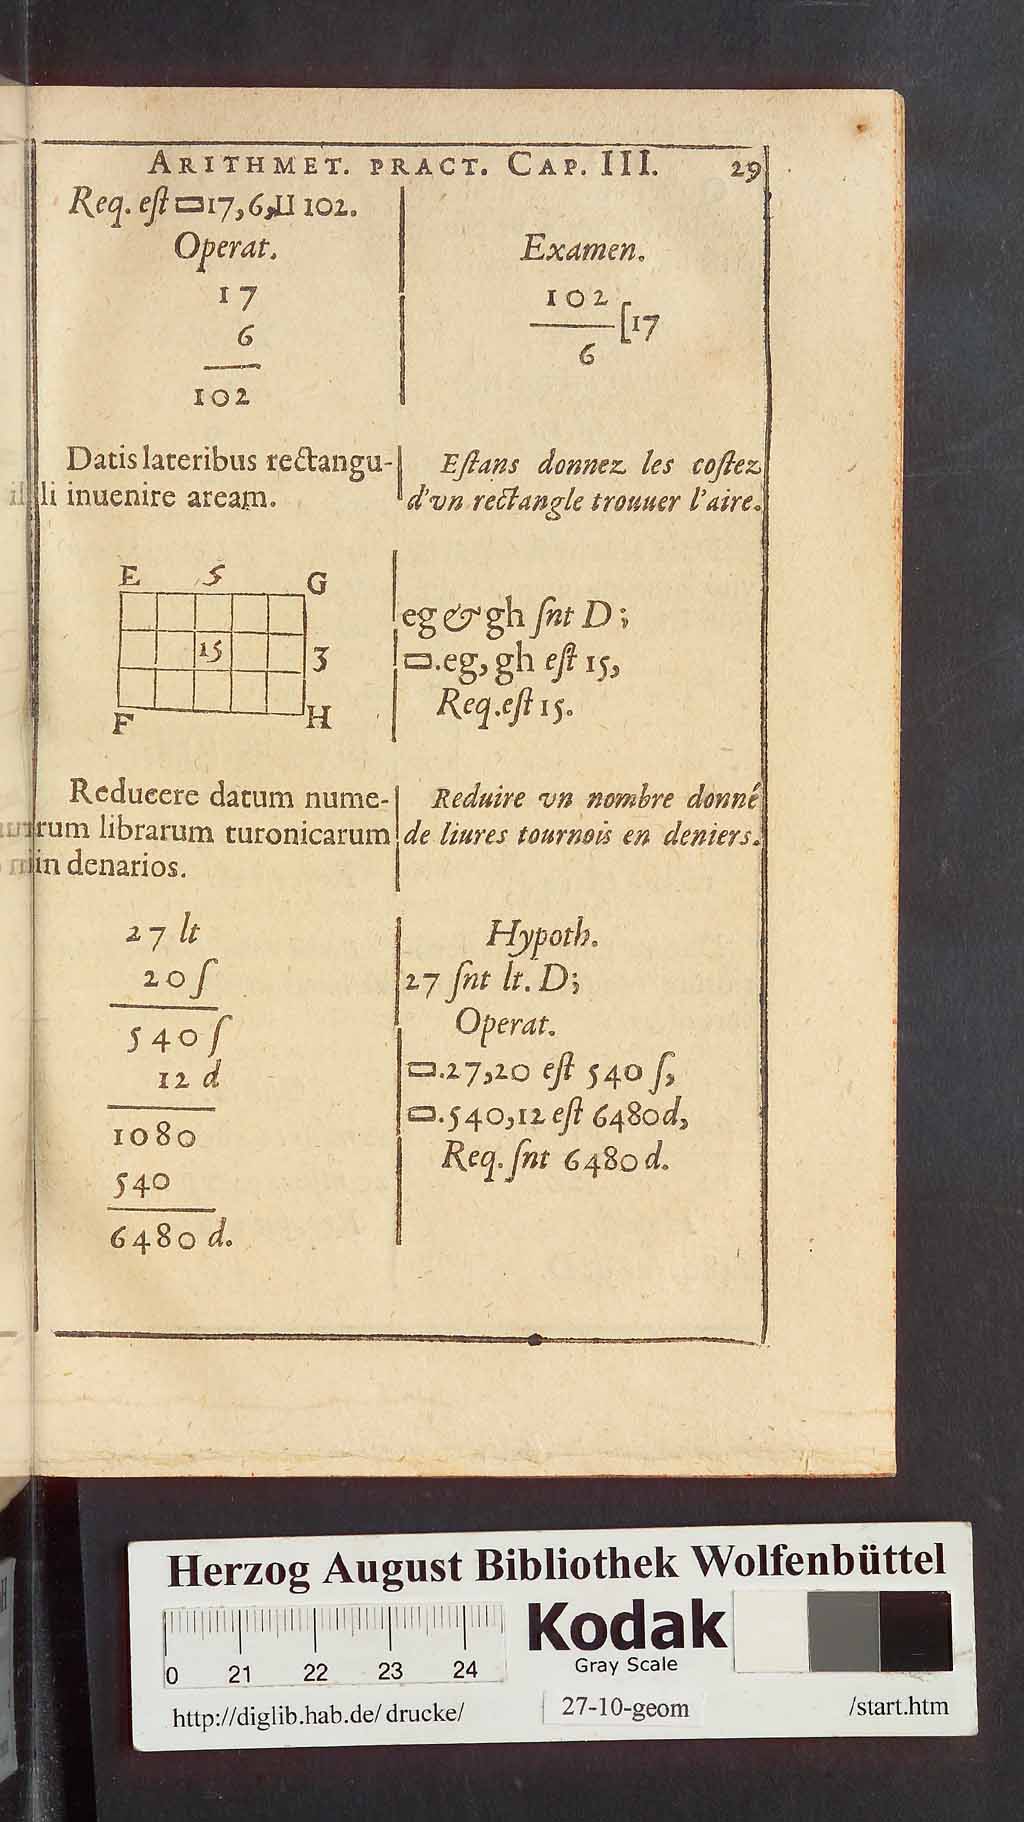 ARITHMET. PRACT. CAP. III. 29
Req. eſt ▭17,6,II 102.
Operat.
17
6
102
Examen.
102
6 [17
Datis lateribus rectangu-
li inuenire aream.
Eſtans donnez les coſtez
d'vn rectangle trouuer l'aire.
E 5 G
15
3
F H
eg & gh ſnt D;
▭.eg, gh eſt 15,
Req.eſt 15.
Reducere datum nume-
rum librarum turonicarum
in denarios.
Reduire vn nombre donné
de liures tournois en deniers.
27 lt
20 ſ
540 ſ
12 d
1080
540
6480 d.
Hypoth.
27 ſnt lt. D;
Operat.
▭.27,20 eſt 540 ſ,
▭.540,12 eſt 6480d,
Req. ſnt 6480 d.
Herzog August Bibliothek Wolfenbüttel
0 21 22 23 24
Kodak
Gray Scale
http://diglib.hab.de/ drucke/
27-10-geom
/start.htm